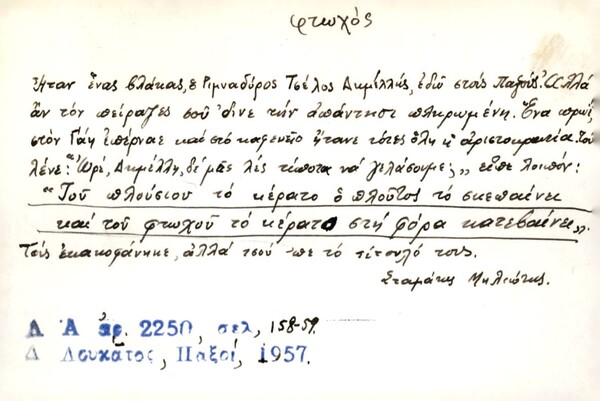 φτωχός
Ἤταν ἕνας βλάκας, ὁ Ριμναδύρος Τσέλος Αχμέλλης, ἐδῶ στούς Παξούς. Ἀλλά
ἄν τόν πείραζες σοῦ 'δινε τήν ἀπάντησι πληρωμένη. Ἕνα πρωί,
στόν Γάη ἐπέρναε καί στό καφενεῖο ἤτανε τότες ὅλη ἡ ἀριστοκρατία. Τοῦ
λένε: "Ὠρέ, Αχμέλλη, δέ μᾶς λές τίποτα νά γελάσουμε;" εἶπε λοιπόν:
"Τοῦ πλούσιου τό κέρατο ὁ πλοῦτος τό σκεπαίνει
καί τοῦ φτωχοῦ τό κέρατο στή φόρα κατεβαίνει".
Τούς ἐκακοφάνηκε, ἀλλά τσοῦ 'πε τό τίτουλό τους.
Σταμάτης Μηλιώτης.
Λ Α ἀρ. 2250, σελ, 158-59.
Δ Λουκᾶτος, Παξοί, 1957.